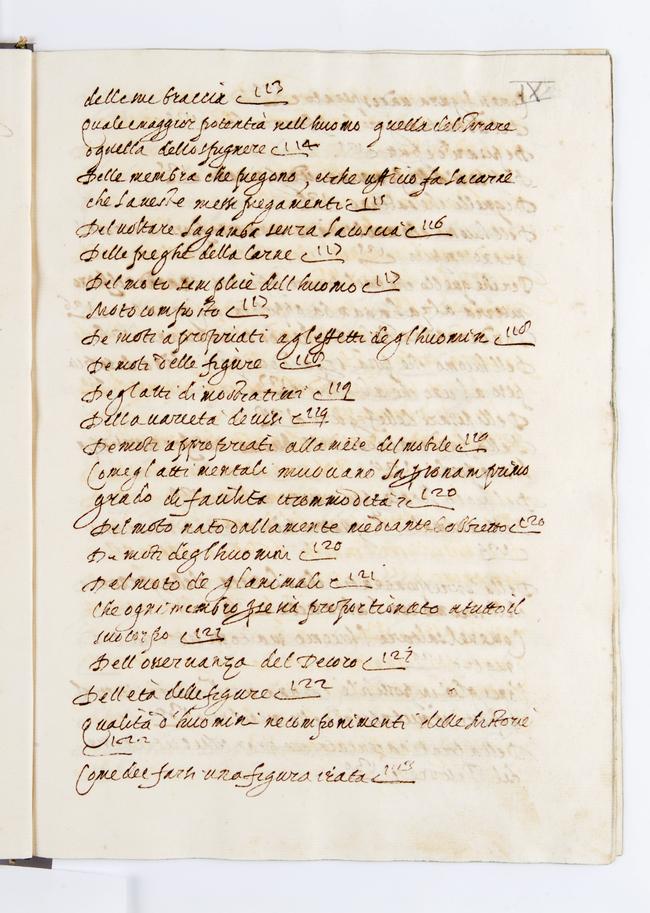 IX
delle me braccia 113
quale e maggior potentia nell huomo quella del tirare
o quella dello spignere 114
Delle membra che piegono, et che ufficio fa la carne
che la veste in esse piegamenti 115
Del voltare la gamba senza la coscia 116
Delle pieghe della carne 117
Del moto semplice dell huomo 117
Moto composto 117
De moti apropriati agl effetti degl huomini 118
De moti delle figure 118
Degl atti dimostrativi 119
Della varieta de visi 119
De moti appropriati alla mente del mobile 119
Come gl atti mentali muovano la persona in primo
grado di facilita et commodita 120
Del moto nato dalla mente mediante l obbietto 120
De moti degl huomini 120
Del moto de gl animali 121
Che ogni membro per se sia proportionato a tutto il
suo corpo 121
Dell osservanza del Decoro 121
Dell età delle figure 122
qualità d'huomini ne componimenti delle historie
122
Come dee farsi una figura irata